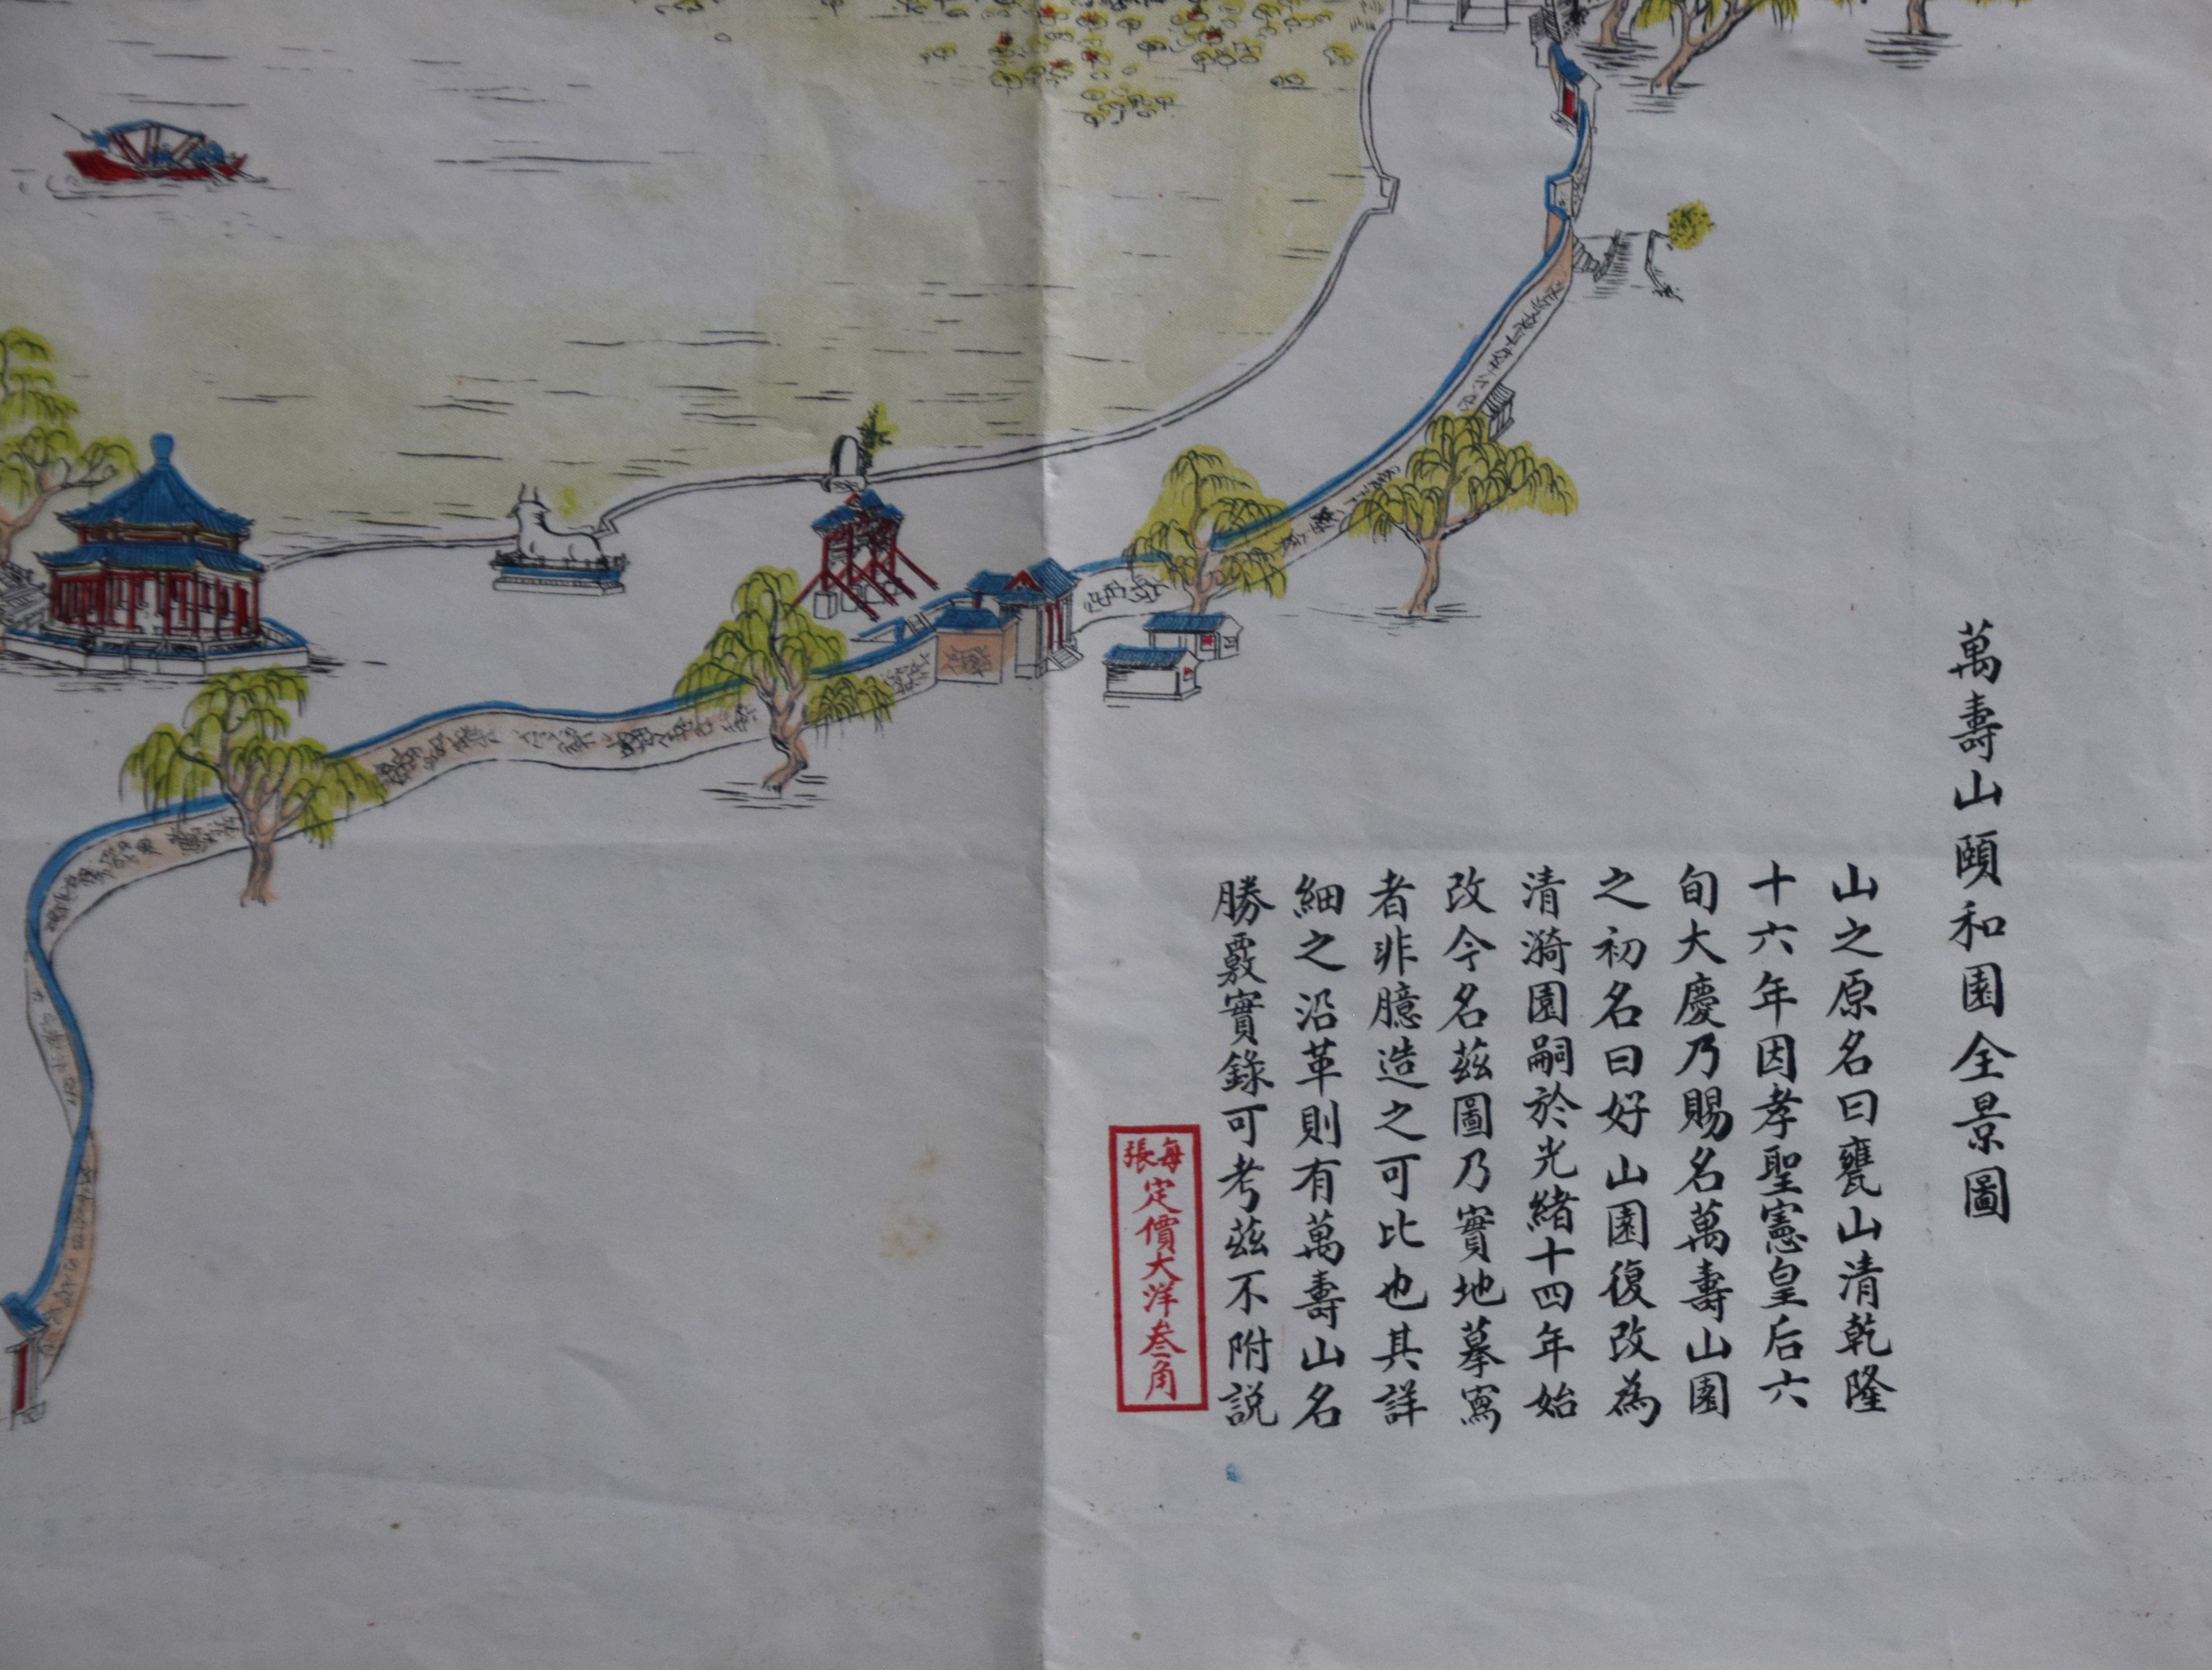 萬壽山頤和園全景圖
山之原名曰甕山清乾隆
十六年因孝聖憲皇后六
旬大慶乃賜名萬壽山園
之初名曰好山園復改為
清漪園嗣於光緒十四年始
改今名茲圖乃實地摹寫
者非臆造之可比也其詳
細之沿革則有萬壽山名
勝覈實錄可考茲不附説
每張定價大洋叁角